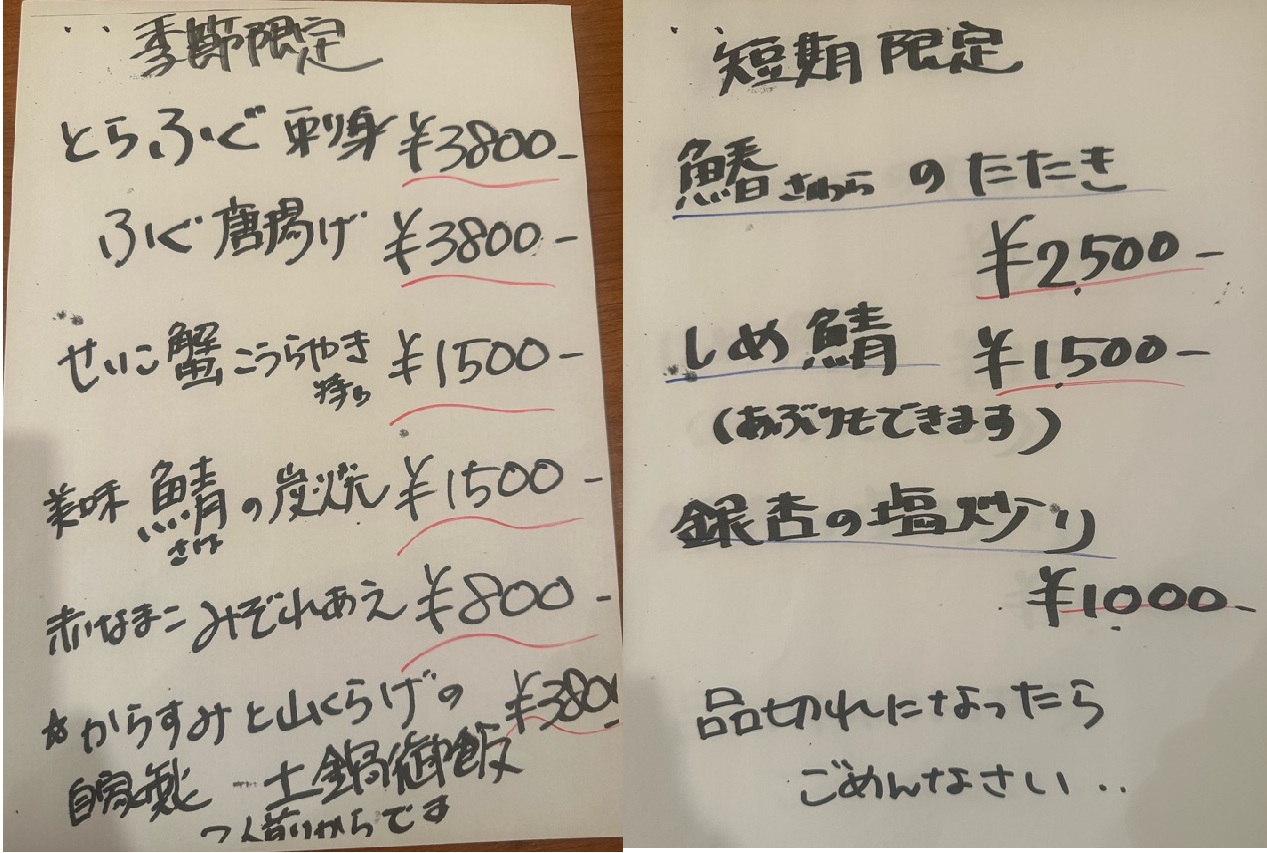 季節限定
とらふぐ 刺身 ¥3800-
ふぐ 唐揚げ ¥3800-
せいこ蟹 こうらやき ¥1500-
美味 鯖の炭火焼 ¥1500-
さば
赤なまこ みぞれあえ ¥800-
☆からすみと山くらげの ¥380
自家製 土鍋御飯
2人前からです
短期限定
鰆 さわら のたたき
¥2,500-
しめ鯖 ¥1,500-
(あぶりもできます)
銀杏の塩炒り
¥1,000-
品切れになったら
ごめんなさい..